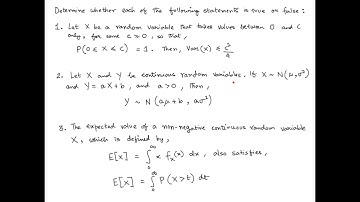 Determine whether each of the following statements is true or false:
1. Let X be a random variable that takes values between 0 and c
only, for some c ≥ 0, so that,
P(0 ≤ X ≤ c) = 1. Then, Var(X) ≤ c²/4
2. Let X and Y be continuous random variables. If X ~ N(μ,σ²)
and Y = aX + b, and a > 0, then,
Y ~ N(aμ+b, aσ²)
3. The expected value of a non-negative continuous random variable
X, which is defined by,
E[X] = ∫₀^∞ x fₓ(x) dx, also satisfies,
E[X] = ∫₀^∞ P(X>t) dt